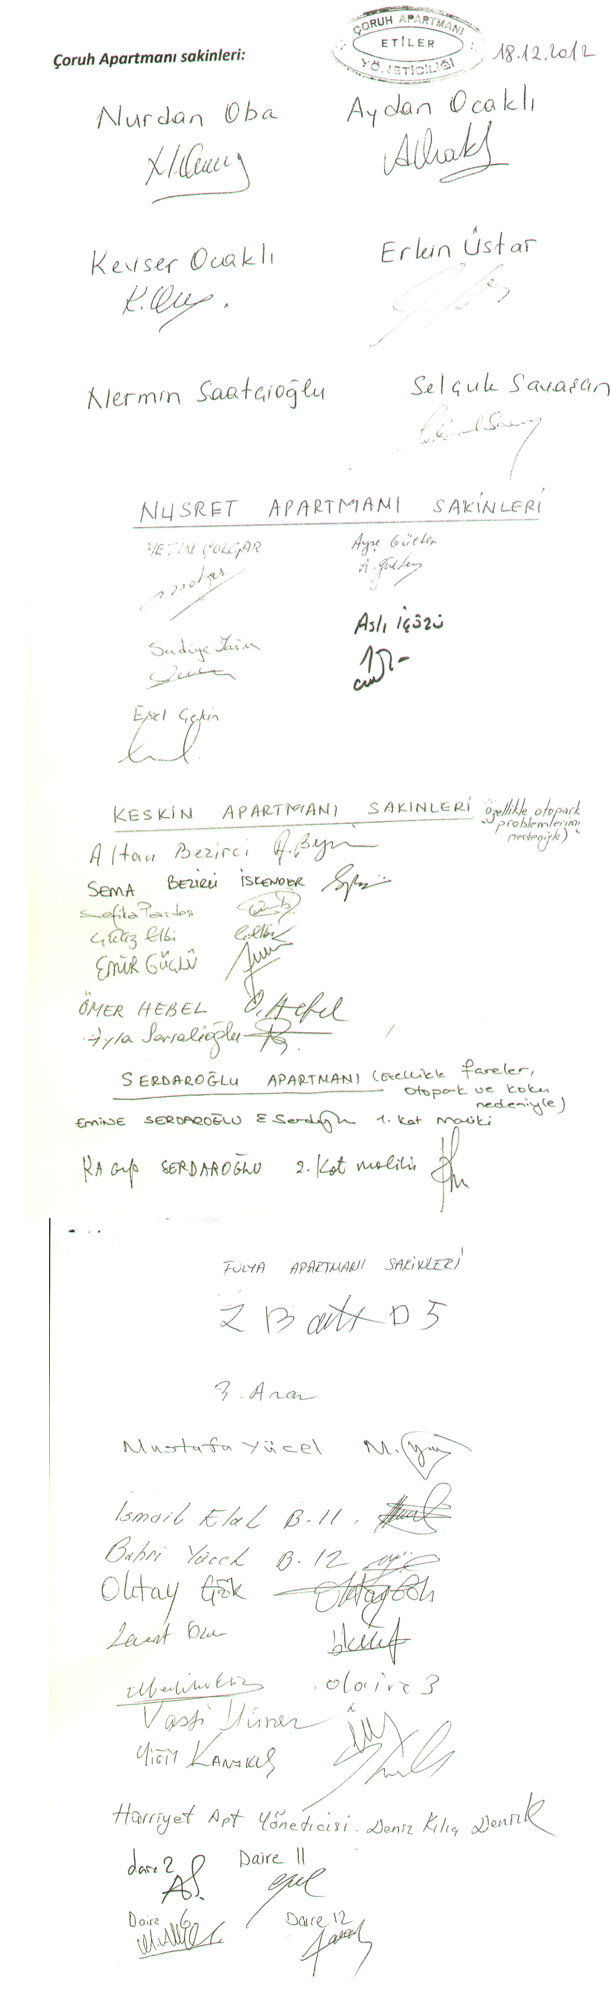 Çoruh Apartmanı sakinleri:
ÇORUH APARTMANI
ETİLER
YÖNETİCİLİĞİ
18.12.2012
Nurdan Oba
Aydan Ocaklı
Kevser Ocaklı
Erkin Üstar
K. Oca
Nermin Saatçioğlu
Selçuk Savaşan
NUSRET APARTMANI SAKİNLERİ
METİN ÇOLGAR
Ayşe Gülten
A. Gülten
Aslı İçözü
Sadiye
Esel Çekin
KESKİN APARTMANI SAKİNLERİ (özellikle otopark
problemlerimiz
nedeniyle)
Altan Bezirci
SEMA BEZİRCİ İSKENDER
EMİR GÜÇLÜ
ÖMER HEBEL Ö. Hebel
SERDAROĞLU APARTMANI (özellikle fareler,
otopark ve koku
nedeniyle)
EMİNE SERDAROĞLU E Serdaroğlu 1. Kat Maliki
RAGIP SERDAROĞLU 2. Kat maliki
FULYA APARTMANI SAKİNLERİ
D 5
Mustafa Yücel M.
İsmail B-11
Bahri Yücel B. 12
Oktay Gök Oktay Gök
daire 3
Vasfi
YİĞİT
Hürriyet Apt Yöneticisi. Deniz Kılıç
daire 2 Daire 11
Daire 6 Daire 12